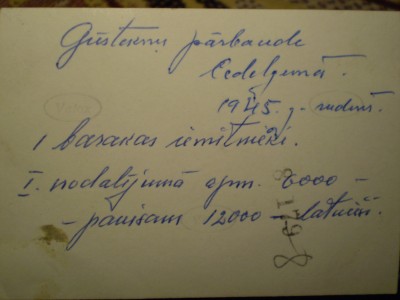 Gūstekņu pārbaude
Cedelgemā.
1945. g. rudenī.
1 barakas iemītnieki.
I. nodalījumā apm. 8000 –
– pavisam 12000 – latvieši.